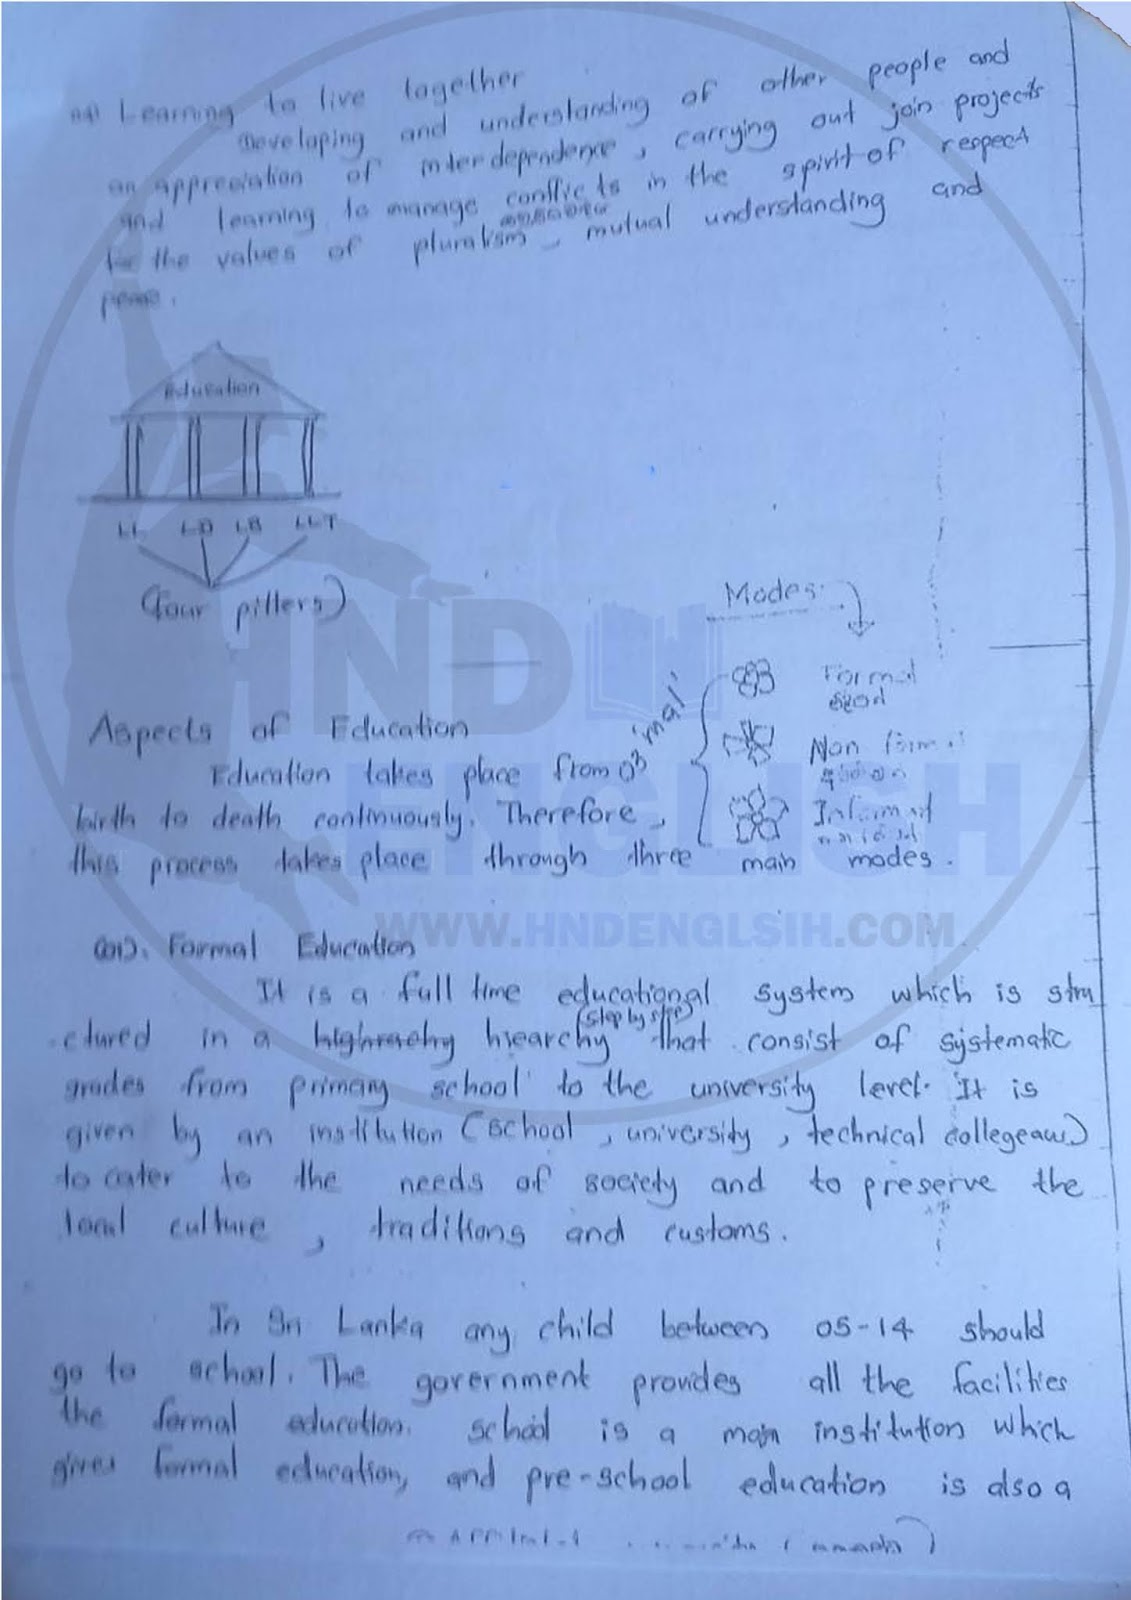 04) Learning to live together
Developing and understanding of other people and
an appreciation of interdependence, carrying out join projects
and learning to manage conflicts in the spirit of respect
for the values of pluralism, mutual understanding and
peace.
Education
LL LD LB LLT
(four pillers)
Modes
Formal
Non formal
Informal
03 'mal'
Aspects of Education
Education takes place from
birth to death continuously. Therefore,
this process takes place through three main modes.
HND
ENGLISH
WWW.HNDENGLSIH.COM
(01). Formal Education
It is a full time educational system which is stru
(step by step)
ctured in a hiearchy that consist of systematic
grades from primary school to the university level. It is
given by an institution (school, university, technical college
to cater to the needs of society and to preserve the
local culture, traditions and customs.
In Sri Lanka any child between 05-14 should
go to school. The government provides all the facilities
the formal education. school is a main institution which
gives formal education, and pre-school education is also a